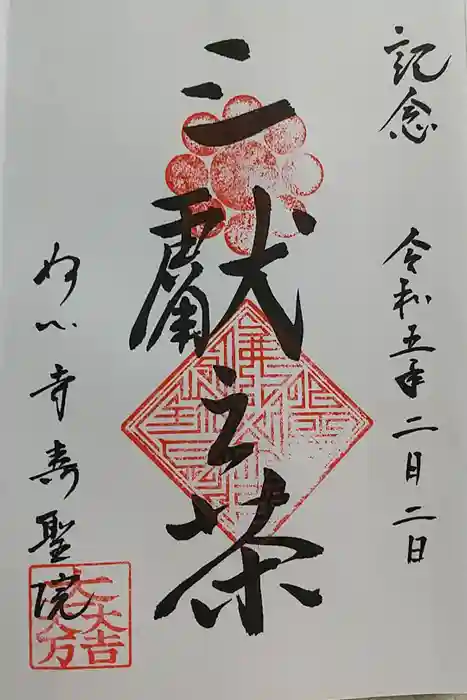 記念 令和五年二月二日
三献之茶
妙心寺寿聖院
大一大万大吉